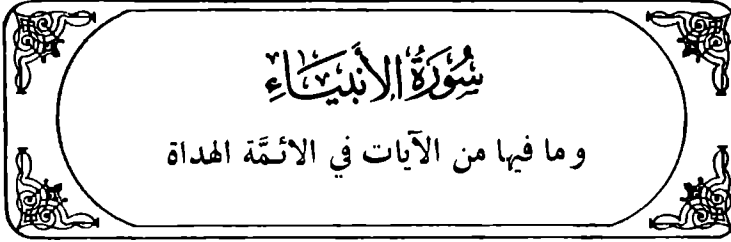 سُورَةُ الأَنبِيَاءِ
و ما فيها من الآيات في الائمَّة الهداة